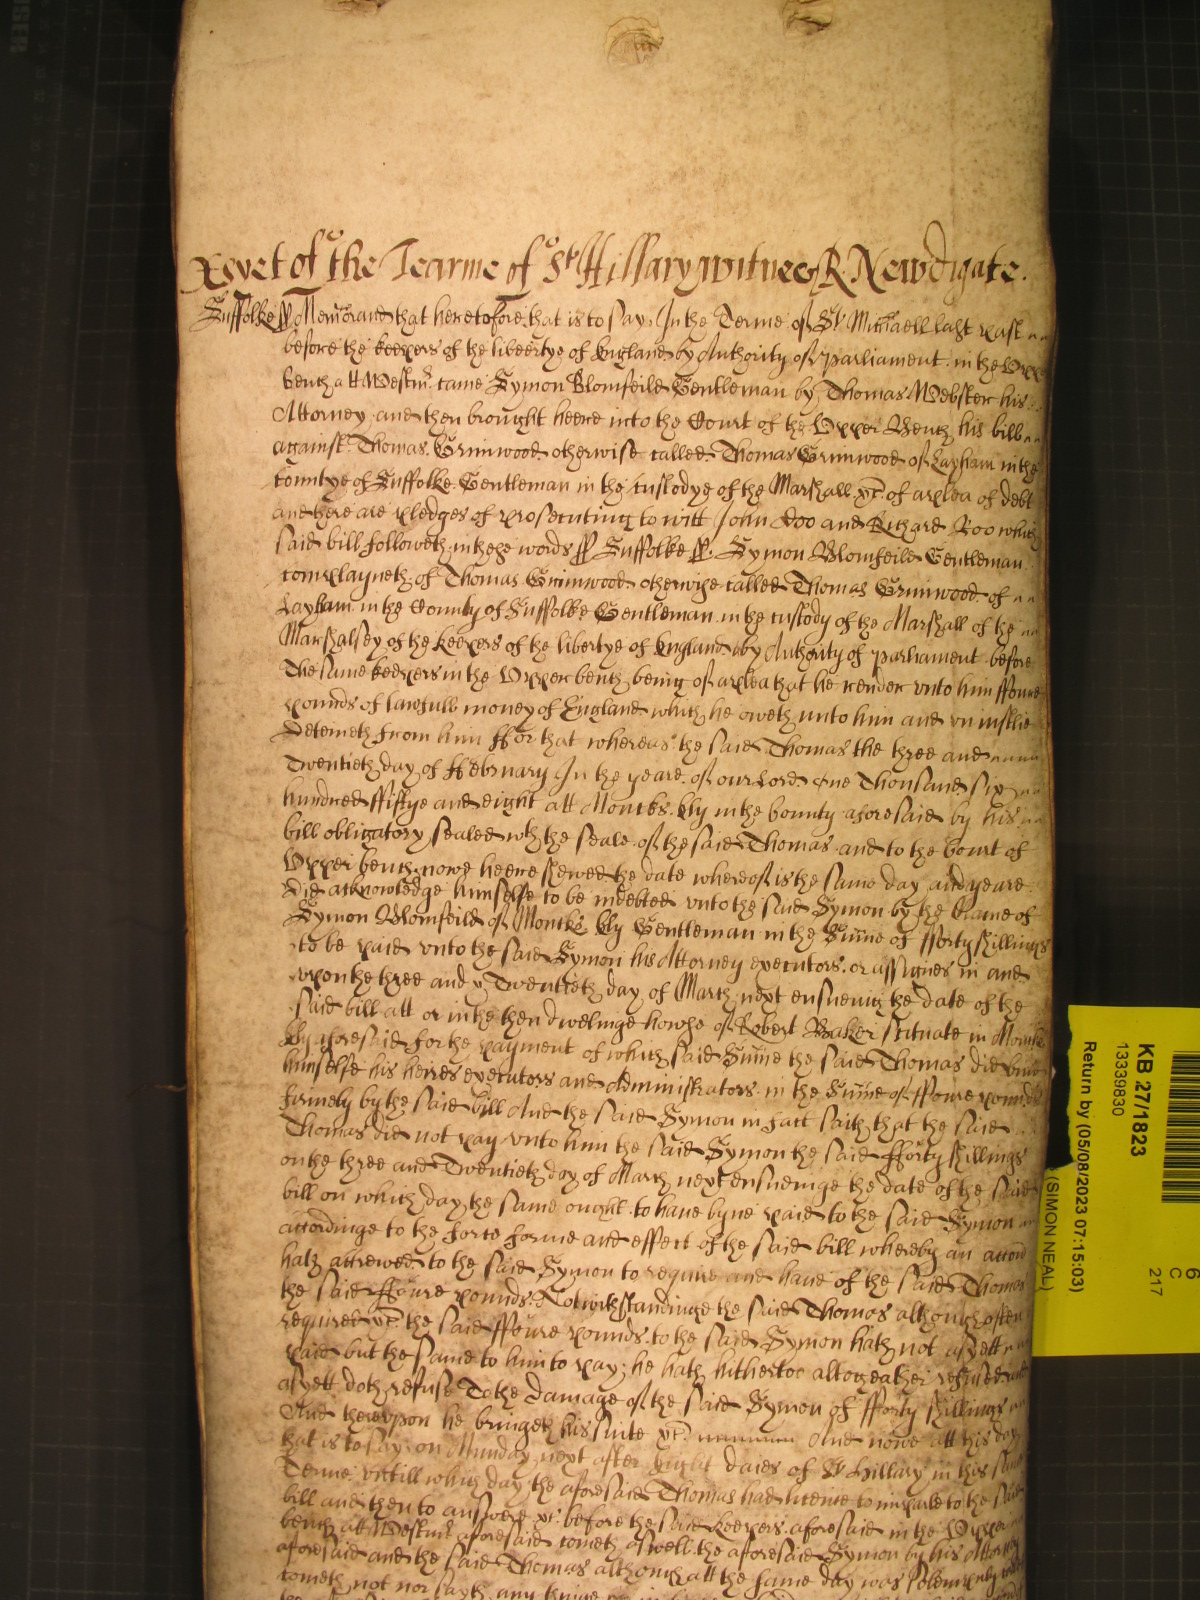 yet of the Tearme of St Hillary witnes R Newdigate.
Suffolke ss Memorand that heretofore that is to say In the Terme of St Michaell last past
before the keepers of the libertye of England by Authority of parliament in the Upper
bench att Westmr came Symon Blomfeild Gentleman by Thomas Webster his
Attorney and then brought heere into the Court of the Upper Bench his bill
against Thomas Grimwood otherwise called Thomas Grimwood of Layham in the
countye of Suffolke Gentleman in the custodye of the Marshall &c of a plea of debt
and here are pledges of prosecuting to witt John Doo and Richard Roo which
said bill followeth in these words ss Suffolke ss Symon Blomfeild Gentleman
complayneth of Thomas Grimwood otherwise called Thomas Grimwood of
Layham in the County of Suffolke Gentleman in the custody of the Marshall of the
Marshalsey of the keepers of the libertye of England by Authority of parliament before
the same keepers in the Upper bench being of a plea that he render unto him ffoure
pounds of lawfull money of England which he oweth unto him and uniustlie
deteineth from him ffor that whereas the said Thomas the three and
Twentieth day of ffebruary In the yeare of our Lord one Thousand six
hundred ffiftye and eight att Moncks Ely in the County aforesaid by his
bill obligatory sealed wth the seale of the said Thomas and to the Court of
Upper bench nowe heere shewed the date whereof is the same day and yeare
did acknowledge himselfe to be indebted unto the said Symon by the Name of
Symon Blomfeild of Moncks Ely Gentleman in the Sume of fforty shillings
to be paid unto the said Symon his Attorney executors or assignes in and
upon the three and Twentieth day of March next ensueing the date of the
said bill att or in the then dwelinge howse of Robert Baker scituate in Moncks
Ely aforesaid for the payment of which said Sume the said Thomas did bind
himselfe his heires executors and Administrators in the Sume of ffoure pounds
firmely by the said bill And the said Symon in fact saith that the said
Thomas did not pay unto him the said Symon the said fforty shillings
on the three and Twentieth day of March next ensueinge the date of the said
bill on which day the same ought to have byne paid to the said Symon
accordinge to the force forme and effect of the said bill whereby an accon
hath accrewed to the said Symon to require and have of the said Thomas
the said ffoure pounds Notwithstandinge the said Thomas although often
required &c the said ffoure pounds to the said Symon hath not as yett
paid but the same to him to pay he hath hithertoo altogeather refused and
as yett doth refuse To the damage of the said Symon of fforty shillings
And thereupon he bringeth his suite &c And nowe att this day
that is to say on Munday next after Eight daies of St Hillary in this same
Terme untill which day the aforesaid Thomas had licence to imparle to the said
bill and then to answere &c before the said keepers aforesaid in the Upper
bench att Westmr aforesaid cometh aswell the aforesaid Symon by his Attorney
aforesaid and the said Thomas although att the same day was solemnly
cometh not nor sayth any thinge
KB 27/1823
13339830
Return by (05/08/2023 07:15:03)
(SIMON NEAL)
6
C
217